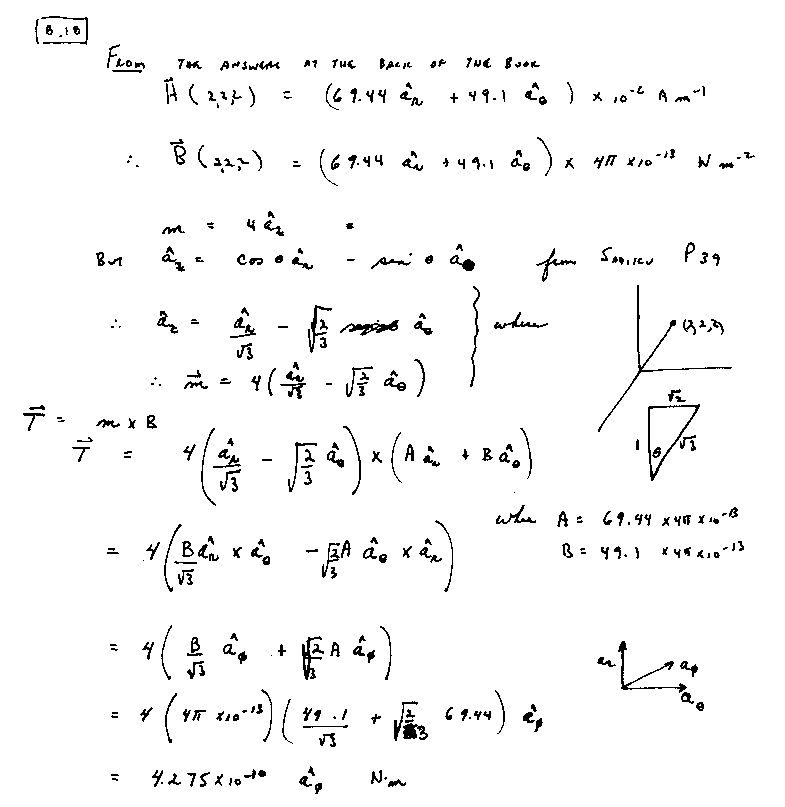 8.18
From THE ANSWERS AT THE BACK OF THE BOOK
H⃗ (2,2,2) = (69.44 â_r + 49.1 â_θ) × 10⁻⁶ A m⁻¹
∴ B⃗ (2,2,2) = (69.44 â_r + 49.1 â_θ) × 4π × 10⁻¹³ N m⁻²
m = 4 â_z =
But â_z = cos θ â_r - sin θ â_θ from P 39
∴ â_z = â_r/√3 - √(2/3) â_θ } where
(2,2,2)
∴ m⃗ = 4(â_r/√3 - √(2/3) â_θ)
√2
1 θ √3
T⃗ = m × B
T⃗ = 4(â_r/√3 - √(2/3) â_θ) × (A â_r + B â_θ)
where A = 69.44 × 4π × 10⁻¹³
B = 49.1 × 4π × 10⁻¹³
= 4(B/√3 â_r × â_θ - √(2/3) A â_θ × â_r)
= 4(B/√3 â_φ + √(2/3) A â_φ)
a_r a_φ
a_θ
= 4(4π × 10⁻¹³)(49.1/√3 + √(2/3) 69.44) â_φ
= 4.275 × 10⁻¹⁰ â_φ N·m